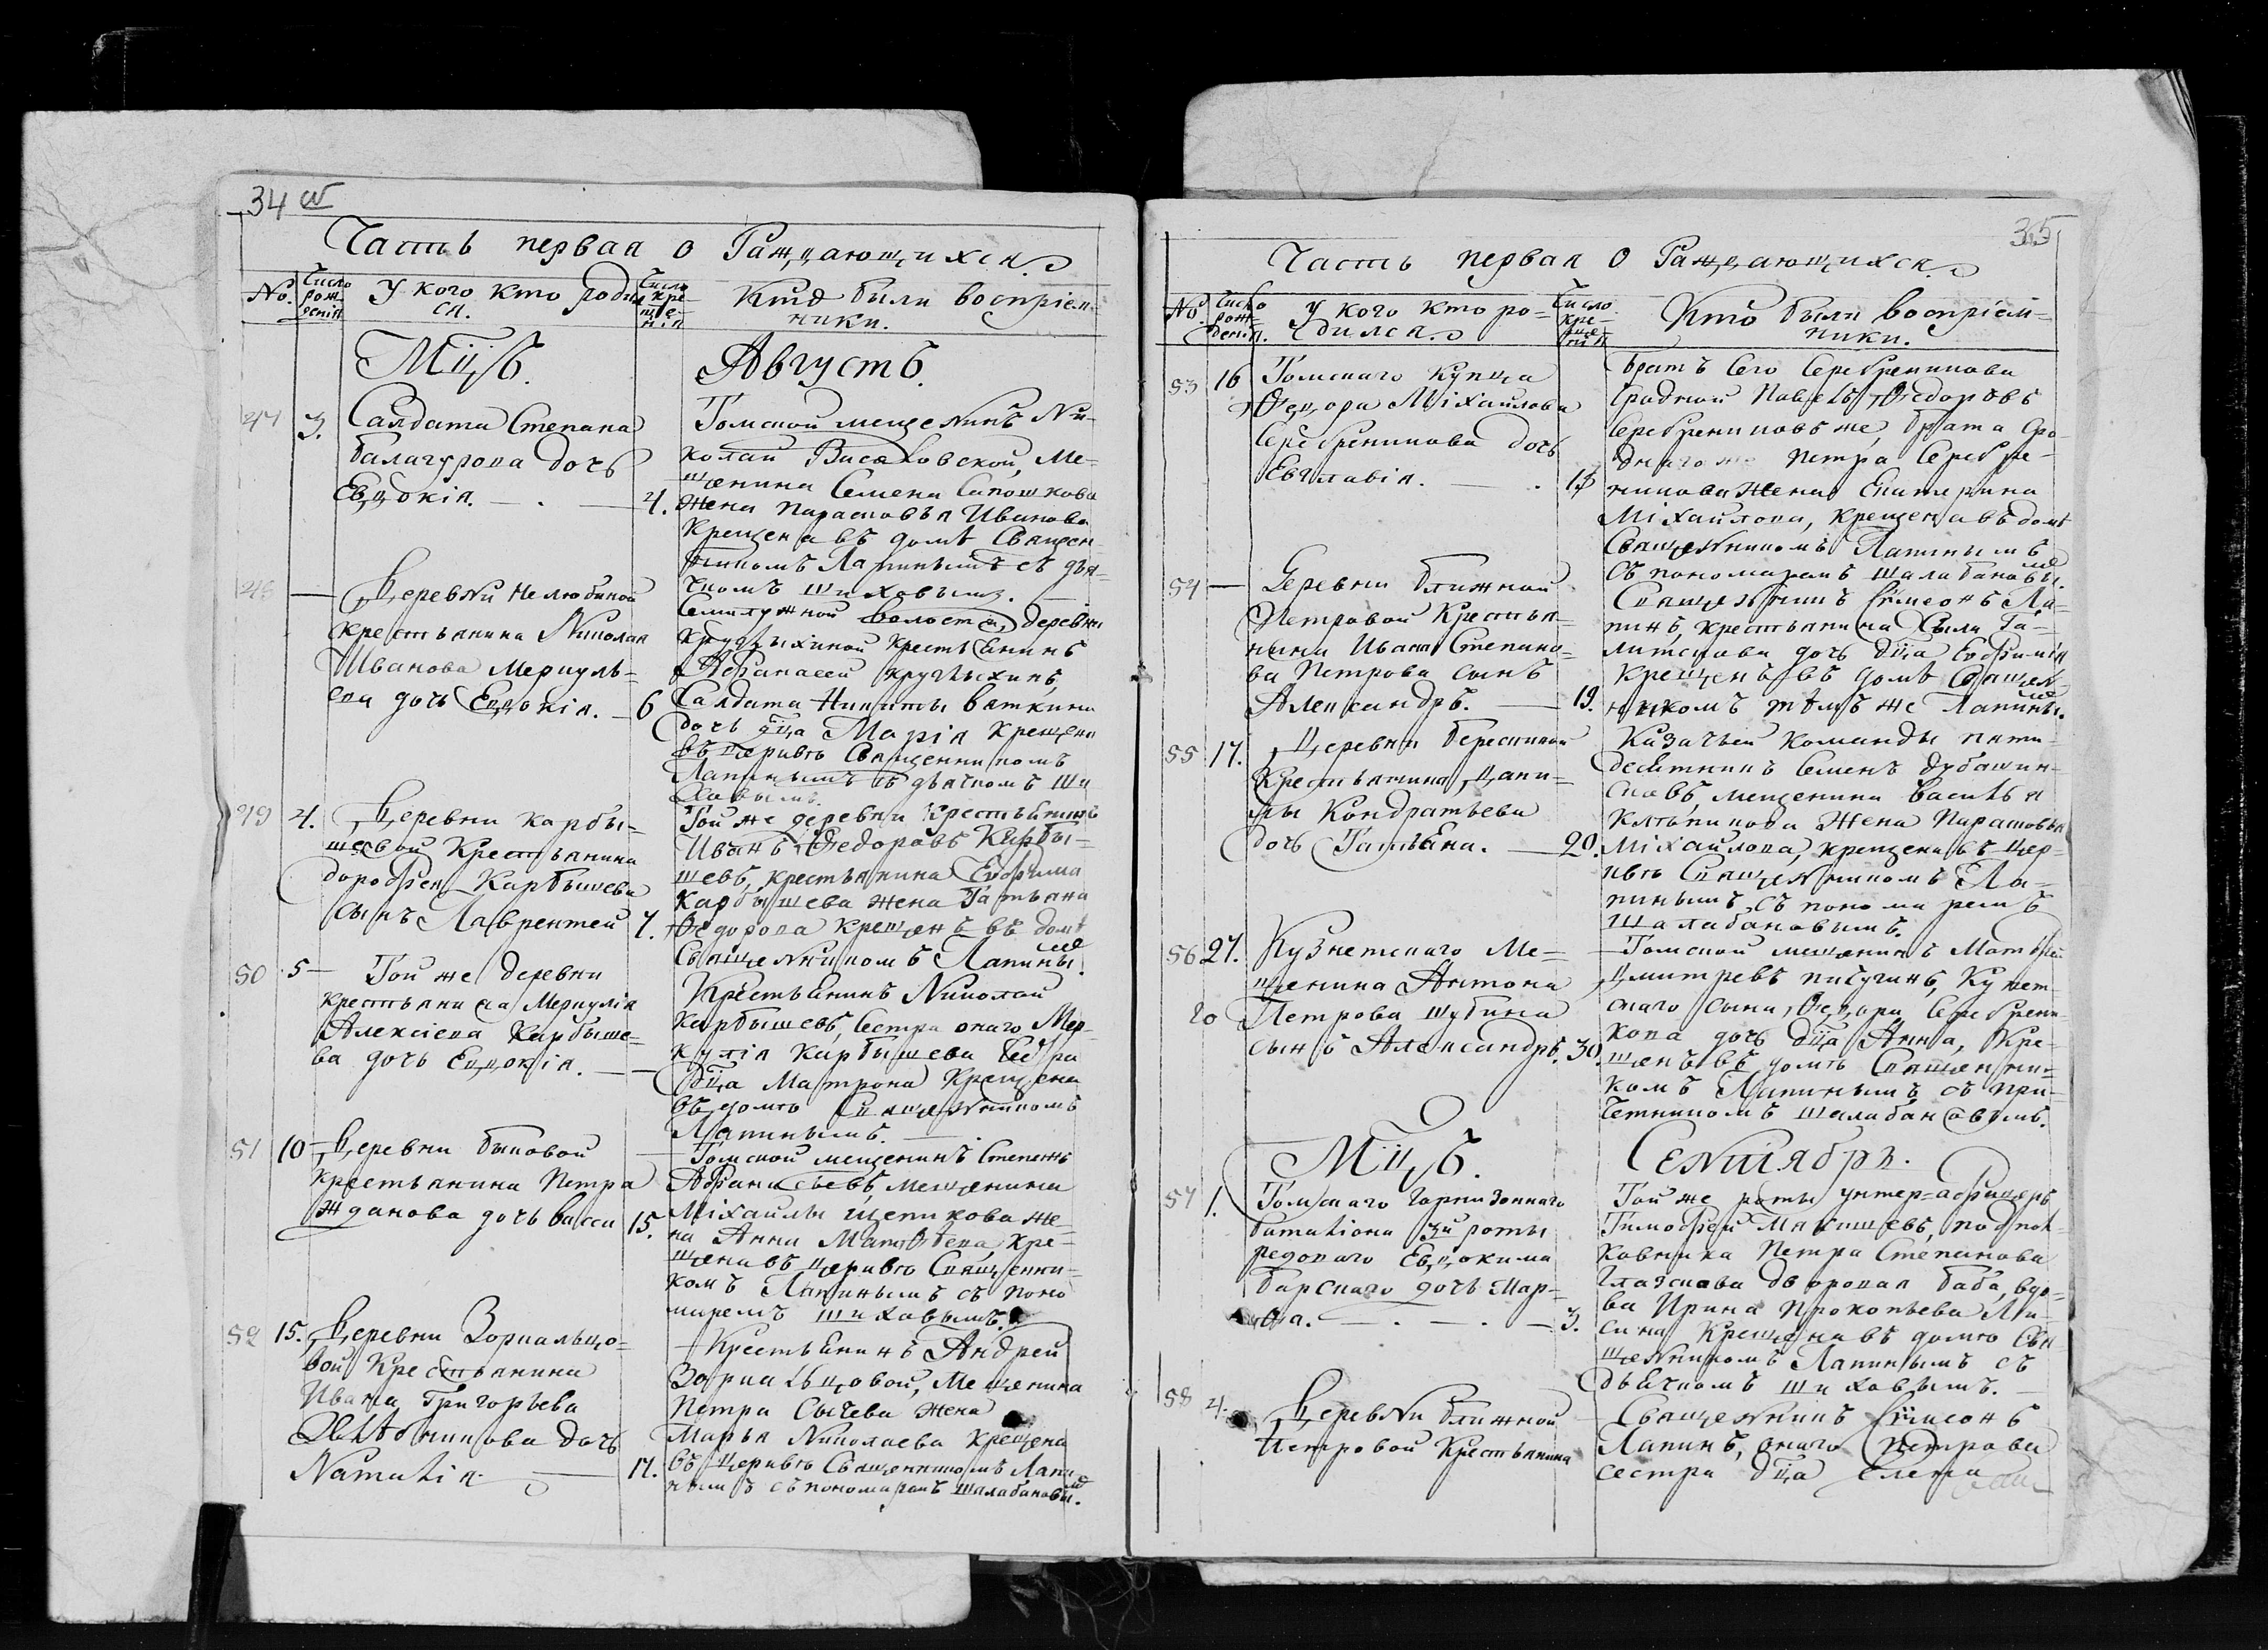 34 об
Часть первая о Раждающихся.
№.
Число рож-дения
У кого кто родил
ся.
Число кре-ще-ния
Кто были воспріем-
ники.
Мцъ.
Августъ.
47
3.
Салдата Степана
балагурова дочь
Евдокія. — . —
4.
Томской мещенинъ Ни-
колай Висаковской, Ме-
щенина Семена Сапошкова
жена Парасковья Иванова
Крещена въ доме Священ-
никомъ Лапинымъ съ дья-
чкомъ Шиховымъ.
48
—
Деревни Нелюбиной
крестьянина Николая
Иванова Меркуль-
ева дочь Евдокія. —
6
Семилужной волости, деревни
круглыхиной крестьянинъ
Афанасей круглыхинъ,
Салдата Никиты вяткина
дочь дца Марія Крещена
въ церкве Священникомъ
Лапинымъ съ дьячкомъ Ши
ховымъ.
49
4.
Деревни карбы-
шевой Крестьянина
дорофея Карбышева
сынъ Лаврентей
7.
Той же деревни Крестьянинъ
Иванъ Федоровъ Карбы-
шевъ, крестьянина Ефима
Карбышева жена Татьяна
Федорова крещенъ въ доме
Священникомъ Лапины.мъ
50
5 —
Той же деревни
крестьянина Меркулія
Алексіева Карбыше-
ва дочь Евдокія. —
—
Крестьянинъ Николай
карбышевъ, Сестра онаго Мер-
кулія Карбышева
дца Матрона Крещена
въ доме Священникомъ
Лапинымъ. —
51
10 —
Деревни быковой
крестьянина Петра
жданова дочь Васси
15.
Томской мещенинъ Степанъ
Афанасьевъ, мещенина
Міхаилы Щепикова же-
на Анна Матфеева, кре-
щена въ церкве Священни-
комъ Лапинымъ съ поно
маремъ Шиховымъ.
52
15.
Деревни Зоркальцо-
вой Крестьянина
Ивана Григорьева
дочь
Наталія —
17.
— Крестьянинъ Андрей
Зоркальцовой, Мещенина
Петра Сычева жена
Марья Николаева Крещена
въ церкве Священникомъ Лапи
нымъ съ пономаремъ Шалабановы.мъ
35
Часть первая о Раждающихся.
№
Число рож-дения.
У кого кто ро-
дился.
Число кре-ще-ния
Кто были воспріем-
ники.
53
16
Томскаго купца
Федора Міхайлова
Серебреникова дочь
Евгlавія. — .
18
братъ Сего Серебреникова
Сродной Павелъ Федоровъ
Серебрениковъ же, брата Сро
днаго же Петра Серебре-
никова жена Екатерина
Міхайлова, крещена въ доме
Священникомъ Лапинымъ
съ пономаремъ Шалабановы.мъ
54
—
Деревни ближной
Петровой Крестья-
нина Ивана Степано-
ва Петрова сынъ
Александръ. —
19.
Священникъ Сімеонъ Ла-
пинъ, крестьянина
дочь дца Евфимія
Крещенъ въ доме Священ
никомъ темъ же Лапины.мъ
55
17.
Деревни берескиной
Крестьянина Дани-
лы Кондратьева
дочь Татьяна. —
20.
Казачьей команды пяти-
десятникъ Семенъ дубашин-
сковъ, мещенина Василья
Клепикова жена Парасковья
Міхайлова, крещена въ цер-
кве Священникомъ Ла-
пинымъ, съ пономаремъ
Шалабановымъ.
56
27.
Кузнетскаго Ме-
щенина Антона
20
Петрова Шубина
сынъ Александръ.
30
— Томской мещенинъ Матфей
Дмитревъ пичугинъ, Купет-
скаго сына Федора Серебрени-
кова дочь дца Анна, Кре-
щенъ въ доме Священни-
комъ Лапинымъ съ при-
четникомъ Шалабановымъ.
Мцъ.
Сентіябрь.
57
1.
Томскаго гарнизоннаго
баталіона 3й роты
редоваго Евдокима
барскаго дочь Мар-
фа. — . — . —
3.
Той же роты унтер=афицеръ
Тимофей Макишевъ, подпол-
ковника Петра Степанова
Глазкова дворовая баба, вдо-
ва Ирина Прокопьева Ли-
сина Крещена въ доме Свя
щенникомъ Лапинымъ съ
дьячкомъ Шиховымъ. —
58
4.
Деревни ближной
Петровой Крестьянина
Священникъ Сімеонъ
Лапинъ, онаго Петрова
сестра дца Елена